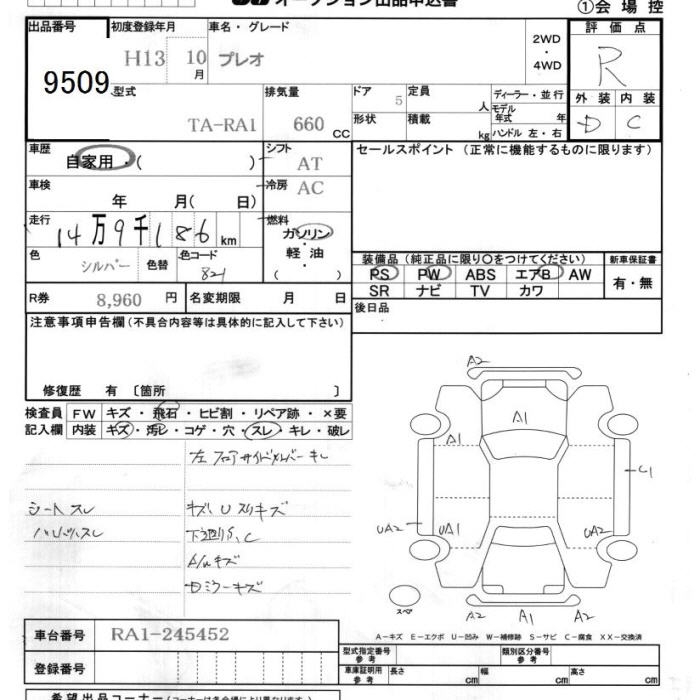 オークション出品申込書
①会場控
出品番号 初度登録年月 車名・グレード 評価点
9509 H13 10月 プレオ 2WD・4WD R
型式 排気量 ドア 定員 ディーラー・並行 外装 内装
TA-RA1 660cc 5 人 モデル年式 年 D C
形状 積載 kg ハンドル 左・右
車歴 シフト セールスポイント(正常に機能するものに限ります)
自家用・( ) AT
車検 冷房
年 月( 日) AC
走行 燃料
14万9千186km ガソリン・軽油
色 色替 色コード ( )
シルバー 821
装備品(純正品に限り○をつけてください) 新車保証書
PS PW ABS エアB AW 有・無
SR ナビ TV カワ
R券 8,960円 名変期限 月 日 後日品
注意事項申告欄(不具合内容等は具体的に記入して下さい)
修復歴 有〔箇所 〕
検査員記入欄 FW キズ・飛石・ヒビ割・リペア跡・×要
内装 キズ・汚レ・コゲ・穴・スレ・キレ・破レ
シートスレ
キズUスリキズ
A/Wキズ
A2
A1
A1
C1
UA2 UA1 UA2
スペア
A2 A1 A2
A−キズ E−エクボ U−凹み W−補修跡 S−サビ C−腐食 XX−交換済
車台番号 RA1-245452
登録番号
型式指定番号 参考 類別区分番号 参考
車庫証明用 参考 長さ cm 幅 cm 高さ cm
希望出品コーナー(コーナーは各会場により異なります)